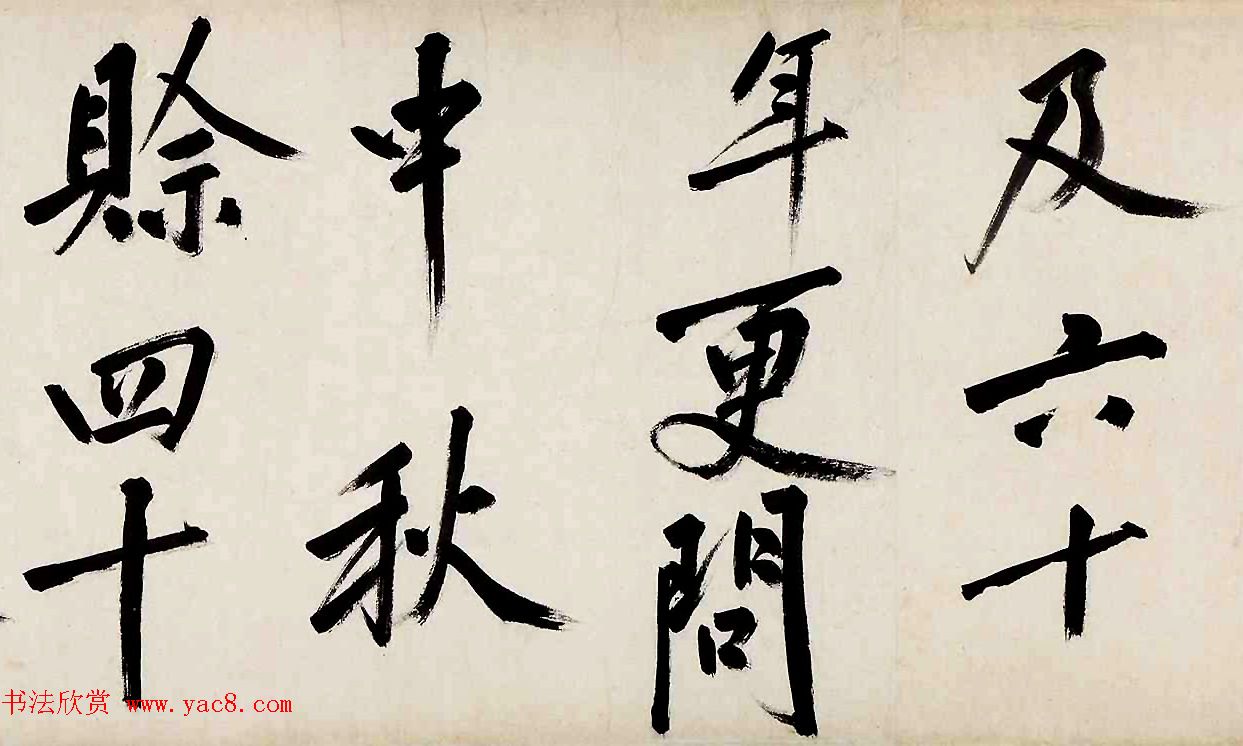 及六十
年更問
中秋
賒四十
书法欣赏 www.yac8.com